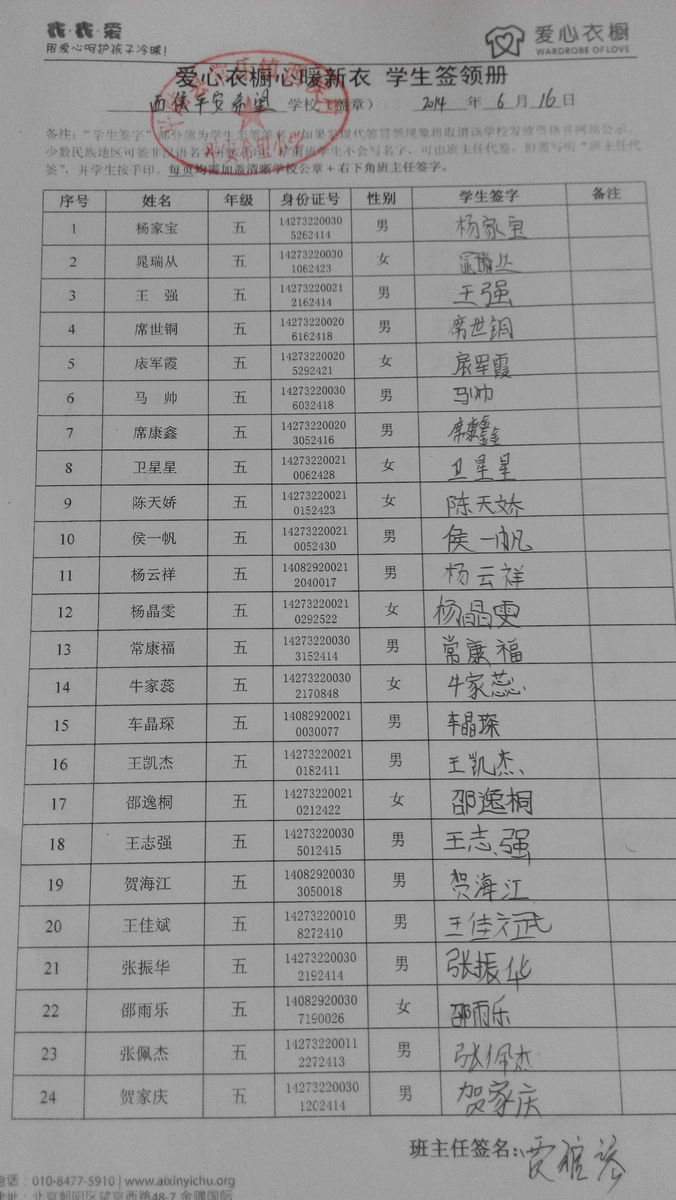 衣·衣·爱
用爱心呵护孩子冷暖!
爱心衣橱
WARDROBE OF LOVE
爱心衣橱心暖新衣 学生签领册
学校(盖章) 2014 年 6 月 16 日
少数民族地区可签非汉语名
签”,并学生按手印。每页均需加盖清晰学校公章+右下角班主任签字。
序号 姓名 年级 身份证号 性别 学生签字 备注
1 杨家宝 五 14273220030 5262414 男 杨家宝
2 晁瑞从 五 14273220030 1062423 女 晁瑞从
3 王 强 五 14273220021 2162414 男 王强
4 席世铜 五 14273220020 6162418 男 席世铜
5 军霞 五 14273220020 5292421 女 军霞
6 马 帅 五 14273220030 6032418 男 马帅
7 席康鑫 五 14273220020 3052416 男 席康鑫
8 卫星星 五 14273220021 0062428 女 卫星星
9 陈天娇 五 14273220021 0152423 女 陈天娇
10 侯一帆 五 14273220021 0052430 男 侯一帆
11 杨云祥 五 14082920021 2040017 男 杨云祥
12 杨晶雯 五 14273220021 0292522 女 杨晶雯
13 常康福 五 14273220030 3152414 男 常康福
14 牛家蕊 五 14273220030 2170848 女 牛家蕊
15 车晶琛 五 14082920021 0030077 男 车晶琛
16 王凯杰 五 14273220021 0182411 男 王凯杰
17 邵逸桐 五 14273220021 0212422 女 邵逸桐
18 王志强 五 14273220030 5012415 男 王志强
19 贺海江 五 14082920030 3050018 男 贺海江
20 王佳斌 五 14273220010 8272410 男 王佳斌
21 张振华 五 14273220030 2192414 男 张振华
22 邵雨乐 五 14082920030 7190026 女 邵雨乐
23 张佩杰 五 14273220011 2272413 男 张佩杰
24 贺家庆 五 14273220030 1202414 男 贺家庆
班主任签名:
电话:010-8477-5910 | www.aixinyichu.org